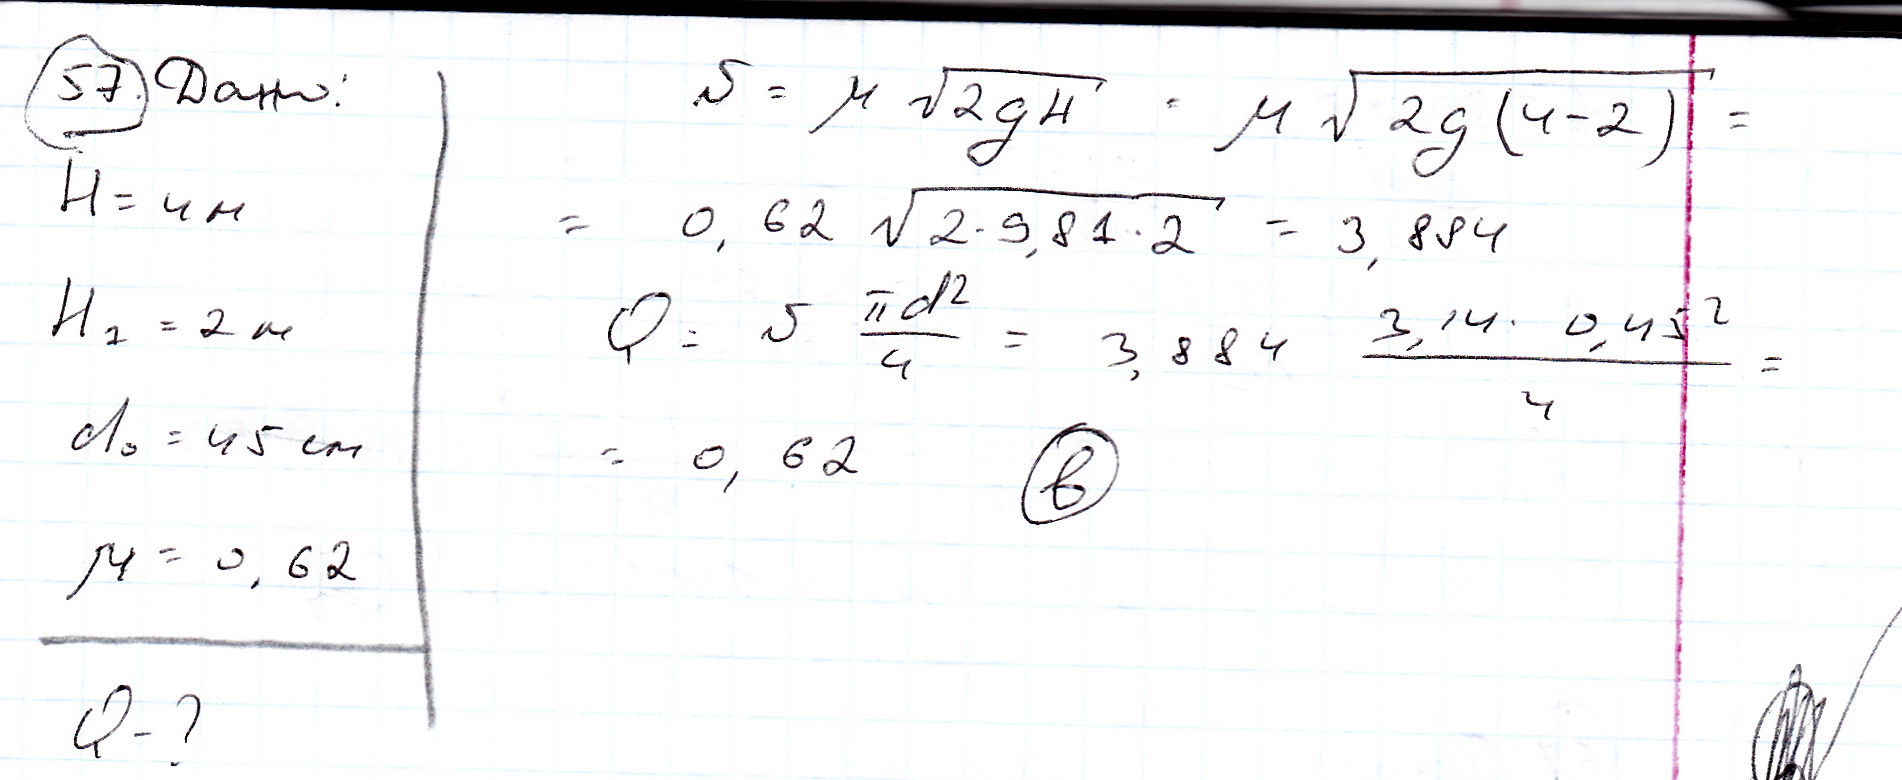 57. Дано:
H = 4 м
H₁ = 2 м
d₀ = 45 см
μ = 0,62
Q - ?
υ = μ √2gH = μ √2g(4-2) =
= 0,62 √2·9,81·2 = 3,884
Q = υ πd²/4 = 3,884 3,14· 0,45²/4 =
= 0,62 в